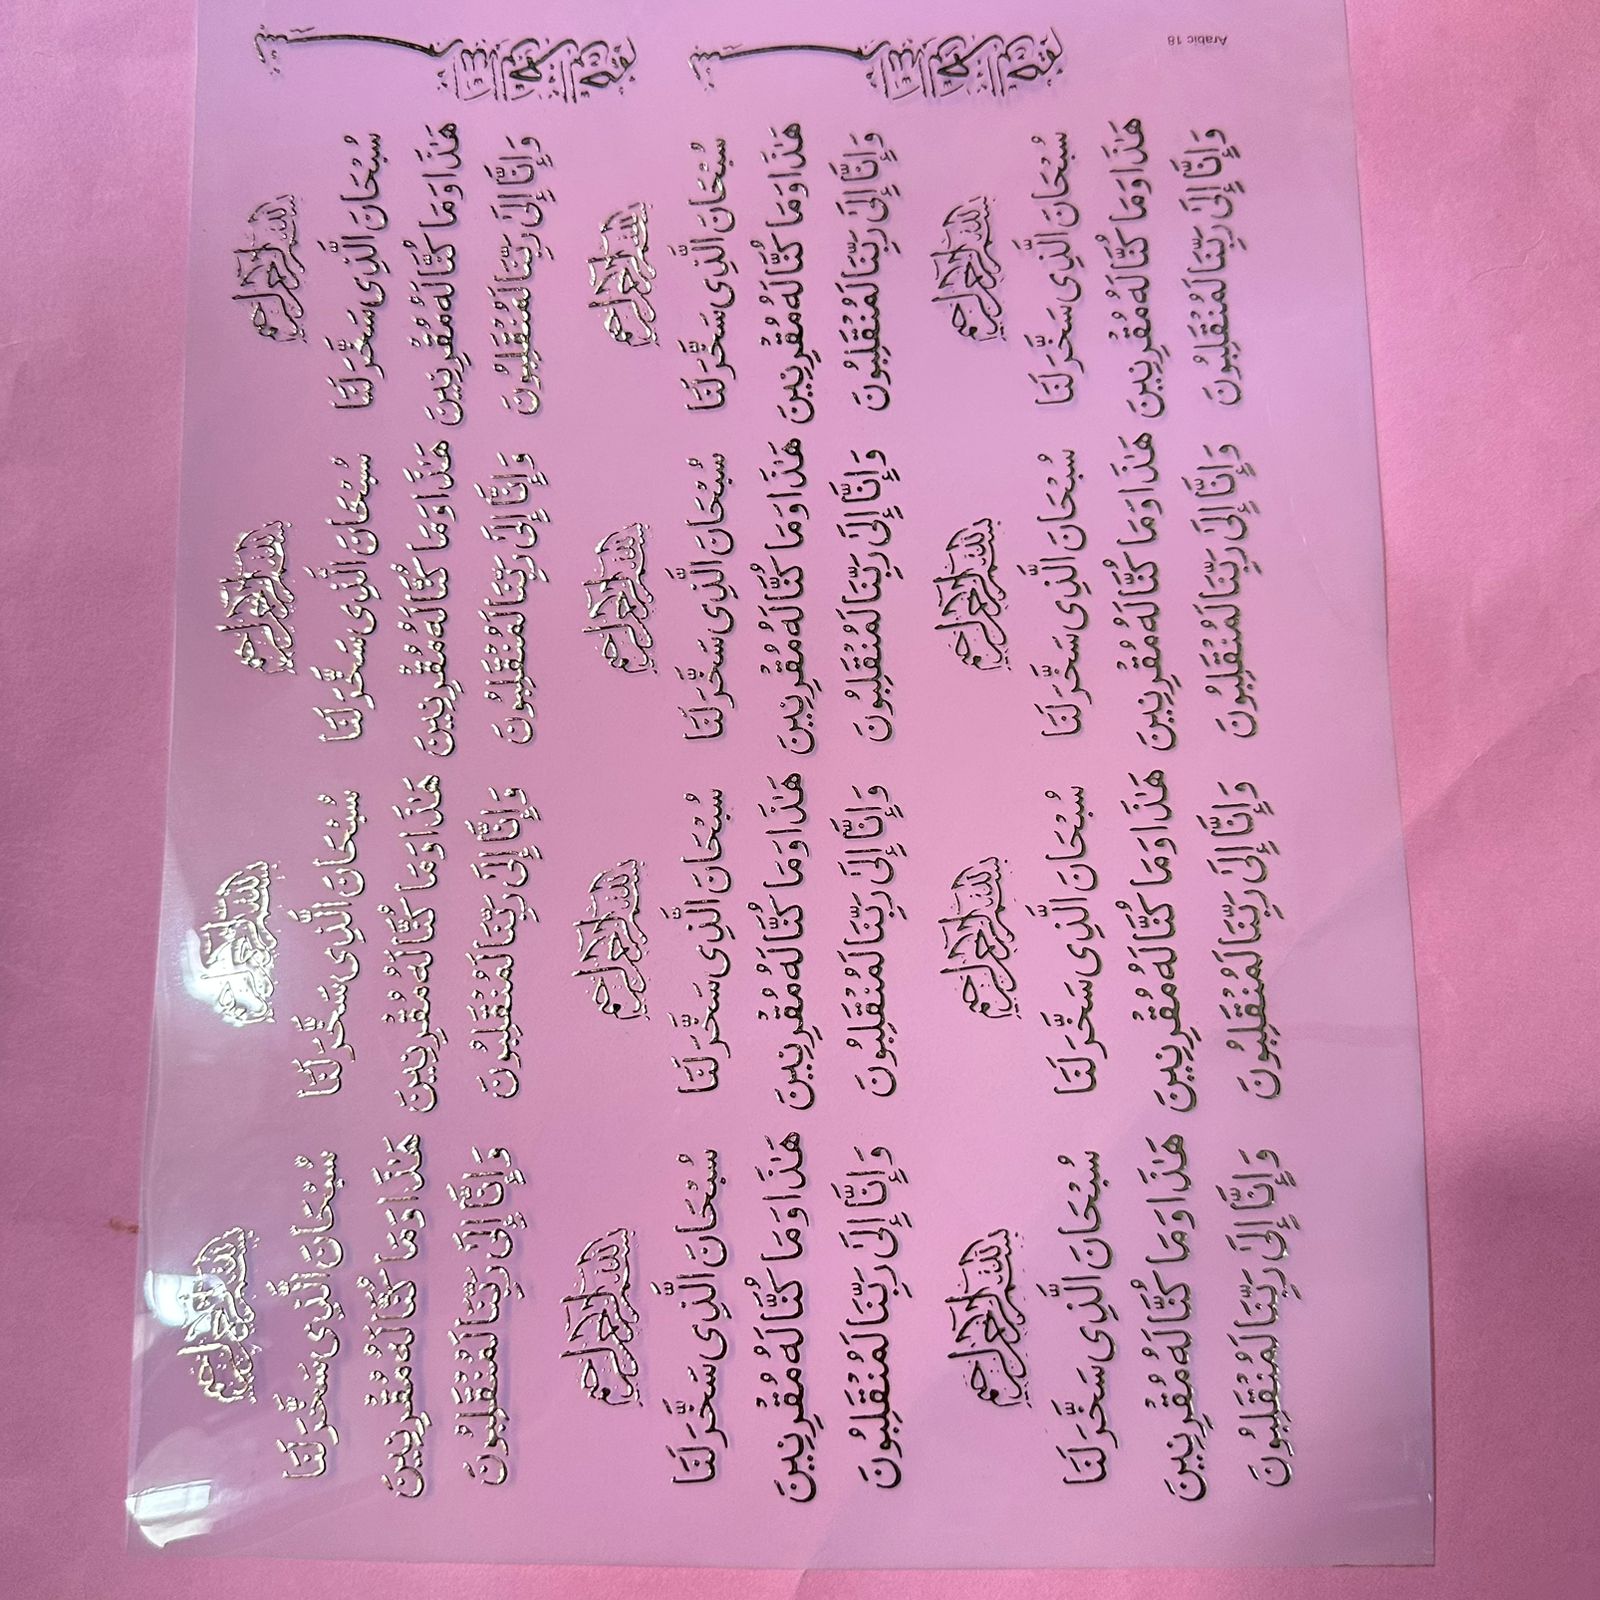 Arabic 18
بسم الله الرحمن الرحيم
بسم الله الرحمن الرحيم
بسم الله الرحمن الرحيم
سُبْحَانَ الَّذِى سَخَّرَ لَنَا
هَٰذَا وَمَا كُنَّا لَهُ مُقْرِنِينَ
وَإِنَّا إِلَىٰ رَبِّنَا لَمُنْقَلِبُونَ
بسم الله الرحمن الرحيم
سُبْحَانَ الَّذِى سَخَّرَ لَنَا
هَٰذَا وَمَا كُنَّا لَهُ مُقْرِنِينَ
وَإِنَّا إِلَىٰ رَبِّنَا لَمُنْقَلِبُونَ
بسم الله الرحمن الرحيم
سُبْحَانَ الَّذِى سَخَّرَ لَنَا
هَٰذَا وَمَا كُنَّا لَهُ مُقْرِنِينَ
وَإِنَّا إِلَىٰ رَبِّنَا لَمُنْقَلِبُونَ
بسم الله الرحمن الرحيم
سُبْحَانَ الَّذِى سَخَّرَ لَنَا
هَٰذَا وَمَا كُنَّا لَهُ مُقْرِنِينَ
وَإِنَّا إِلَىٰ رَبِّنَا لَمُنْقَلِبُونَ
بسم الله الرحمن الرحيم
سُبْحَانَ الَّذِى سَخَّرَ لَنَا
هَٰذَا وَمَا كُنَّا لَهُ مُقْرِنِينَ
وَإِنَّا إِلَىٰ رَبِّنَا لَمُنْقَلِبُونَ
بسم الله الرحمن الرحيم
سُبْحَانَ الَّذِى سَخَّرَ لَنَا
هَٰذَا وَمَا كُنَّا لَهُ مُقْرِنِينَ
وَإِنَّا إِلَىٰ رَبِّنَا لَمُنْقَلِبُونَ
بسم الله الرحمن الرحيم
سُبْحَانَ الَّذِى سَخَّرَ لَنَا
هَٰذَا وَمَا كُنَّا لَهُ مُقْرِنِينَ
وَإِنَّا إِلَىٰ رَبِّنَا لَمُنْقَلِبُونَ
بسم الله الرحمن الرحيم
سُبْحَانَ الَّذِى سَخَّرَ لَنَا
هَٰذَا وَمَا كُنَّا لَهُ مُقْرِنِينَ
وَإِنَّا إِلَىٰ رَبِّنَا لَمُنْقَلِبُونَ
بسم الله الرحمن الرحيم
سُبْحَانَ الَّذِى سَخَّرَ لَنَا
هَٰذَا وَمَا كُنَّا لَهُ مُقْرِنِينَ
وَإِنَّا إِلَىٰ رَبِّنَا لَمُنْقَلِبُونَ
بسم الله الرحمن الرحيم
سُبْحَانَ الَّذِى سَخَّرَ لَنَا
هَٰذَا وَمَا كُنَّا لَهُ مُقْرِنِينَ
وَإِنَّا إِلَىٰ رَبِّنَا لَمُنْقَلِبُونَ
بسم الله الرحمن الرحيم
سُبْحَانَ الَّذِى سَخَّرَ لَنَا
هَٰذَا وَمَا كُنَّا لَهُ مُقْرِنِينَ
وَإِنَّا إِلَىٰ رَبِّنَا لَمُنْقَلِبُونَ
بسم الله الرحمن الرحيم
سُبْحَانَ الَّذِى سَخَّرَ لَنَا
هَٰذَا وَمَا كُنَّا لَهُ مُقْرِنِينَ
وَإِنَّا إِلَىٰ رَبِّنَا لَمُنْقَلِبُونَ